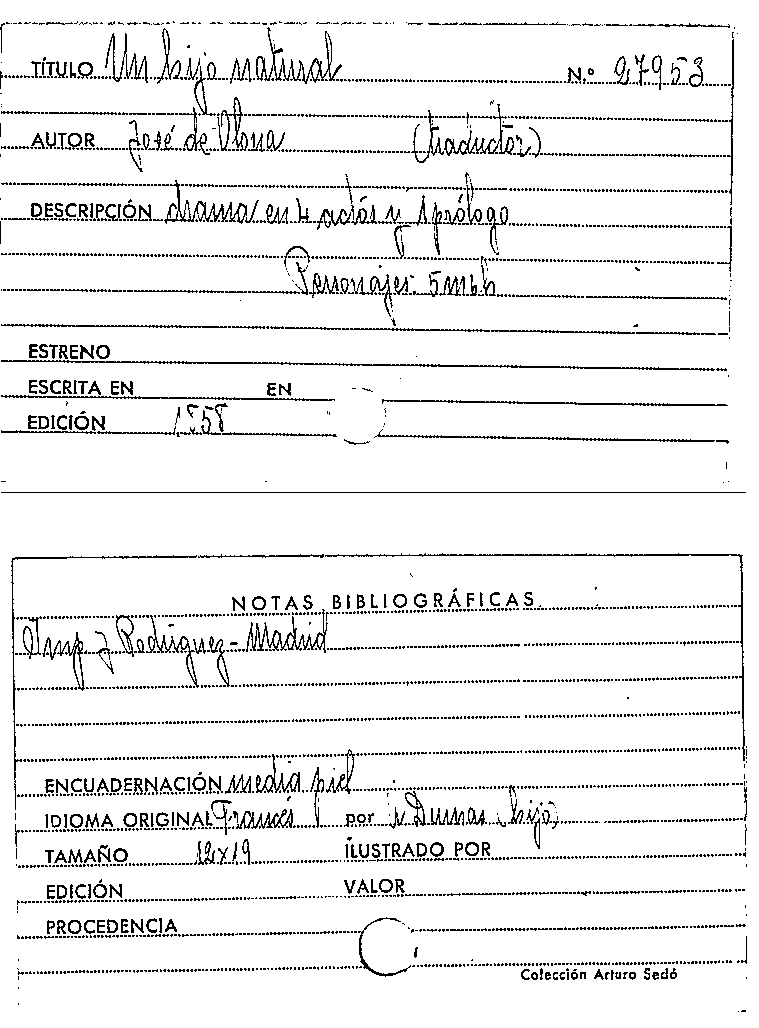 TÍTULO Un hijo natural N.º 27953
AUTOR José de Olona (traductor)
DESCRIPCIÓN drama en 4 actos y 1 prólogo
Personajes: 5m6h
ESTRENO
ESCRITA EN EN
EDICIÓN 1858
NOTAS BIBLIOGRÁFICAS
Imp J Rodríguez - Madrid
ENCUADERNACIÓN media piel
IDIOMA ORIGINAL Francés por Dumas (hijo)
TAMAÑO 12x19 ILUSTRADO POR
EDICIÓN VALOR
PROCEDENCIA
Colección Arturo Sedó